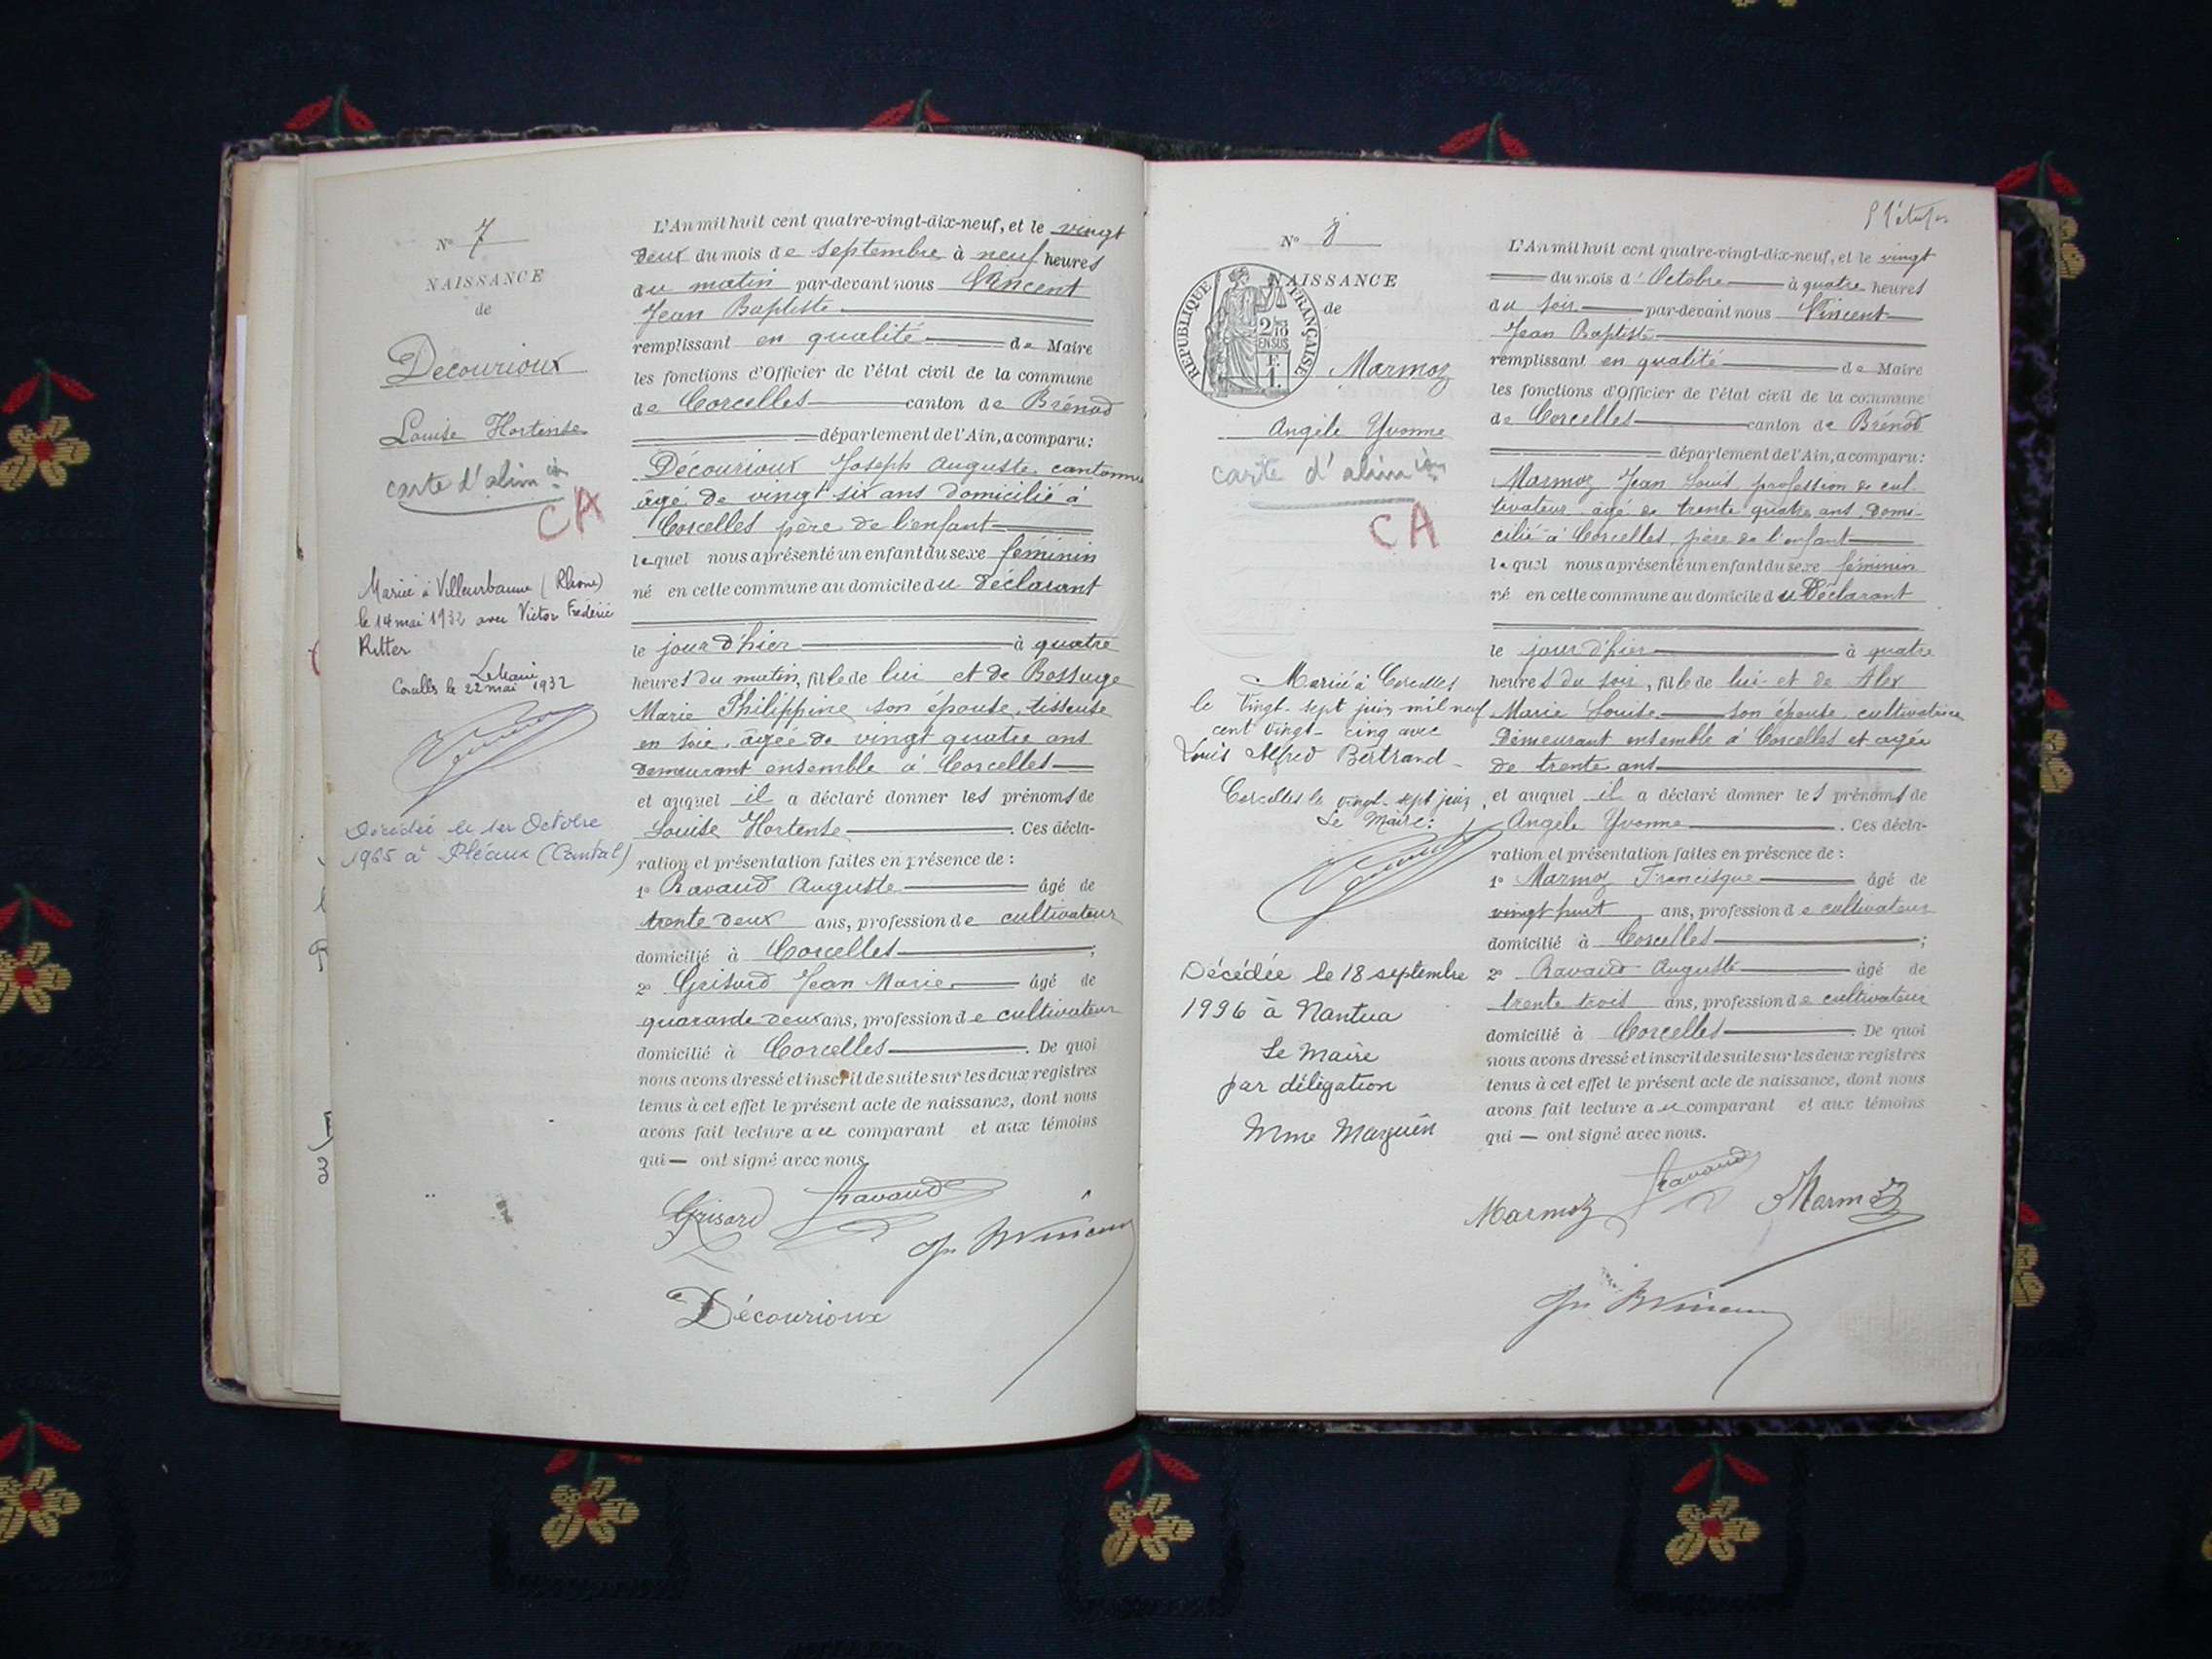 N° 7
NAISSANCE
de
Decourioux
Louise Hortense
carte d'alim ion
CA
Mariée à Villeurbanne (Rhone)
le 14 mai 1932 avec Victor Frédéric
Ritter
Le Maire
Corcelles le 22 mai 1932
Décédée le 1er Octobre
1965 à Pléaux (Cantal)
L'An mil huit cent quatre-vingt-dix-neuf, et le vingt
deux du mois de septembre à neuf heures
du matin par-devant nous Vincent
Jean Baptiste
remplissant en qualité de Maire
les fonctions d'Officier de l'état civil de la commune
de Corcelles canton de Brénod
département de l'Ain, a comparu:
Décourioux Joseph Auguste, cantonnier
âgé de vingt six ans domicilié à
Corcelles père de l'enfant
lequel nous a présenté un enfant du sexe féminin
né en cette commune au domicile du déclarant
le jour d'hier à quatre
heures du matin, fille de lui et de Bossuge
Marie Philippine son épouse, tisseuse
en soie, âgée de vingt quatre ans
demeurant ensemble à Corcelles
et auquel il a déclaré donner les prénoms de
Louise Hortense. Ces décla-
ration et présentation faites en présence de :
1° Ravaud Auguste âgé de
trente deux ans, profession de cultivateur
domicilié à Corcelles ;
2° Grisard Jean Marie, âgé de
quarante deux ans, profession de cultivateur
domicilié à Corcelles. De quoi
nous avons dressé et inscrit de suite sur les deux registres
tenus à cet effet le présent acte de naissance, dont nous
avons fait lecture au comparant et aux témoins
qui — ont signé avec nous.
Grisard Ravaud
Décourioux
N° 8
NAISSANCE
de
RÉPUBLIQUE FRANÇAISE
2/10
EN SUS
F.
1.
Marmoz
Angèle Yvonne
carte d'alim ion
CA
Mariée à Corcelles
le vingt-sept juin mil neuf
cent vingt-cinq avec
Louis Alfred Bertrand -
Corcelles le vingt-sept juin
Le Maire:
Décédée le 18 septembre
1996 à Nantua
Le Maire
par délégation
Mme Marguin
L'An mil huit cent quatre-vingt-dix-neuf, et le vingt
du mois d'Octobre à quatre heures
du soir par-devant nous Vincent
Jean Baptiste
remplissant en qualité de Maire
les fonctions d'Officier de l'état civil de la commune
de Corcelles canton de Brénod
département de l'Ain, a comparu:
Marmoz Jean Louis profession de cul-
tivateur âgé de trente quatre ans domi-
cilié à Corcelles, père de l'enfant
lequel nous a présenté un enfant du sexe féminin
né en cette commune au domicile du Déclarant
le jour d'hier à quatre
heures du soir, fille de lui et de Alex
Marie Louise son épouse cultivatrice
demeurant ensemble à Corcelles et âgée
de trente ans
et auquel il a déclaré donner les prénoms de
Angèle Yvonne. Ces décla-
ration et présentation faites en présence de :
1° Marmoz Francisque âgé de
vingt huit ans, profession de cultivateur
domicilié à Corcelles ;
2° Ravaud Auguste âgé de
trente trois ans, profession de cultivateur
domicilié à Corcelles. De quoi
nous avons dressé et inscrit de suite sur les deux registres
tenus à cet effet le présent acte de naissance, dont nous
avons fait lecture au comparant et aux témoins
qui — ont signé avec nous.
Marmoz Ravaud Marmoz